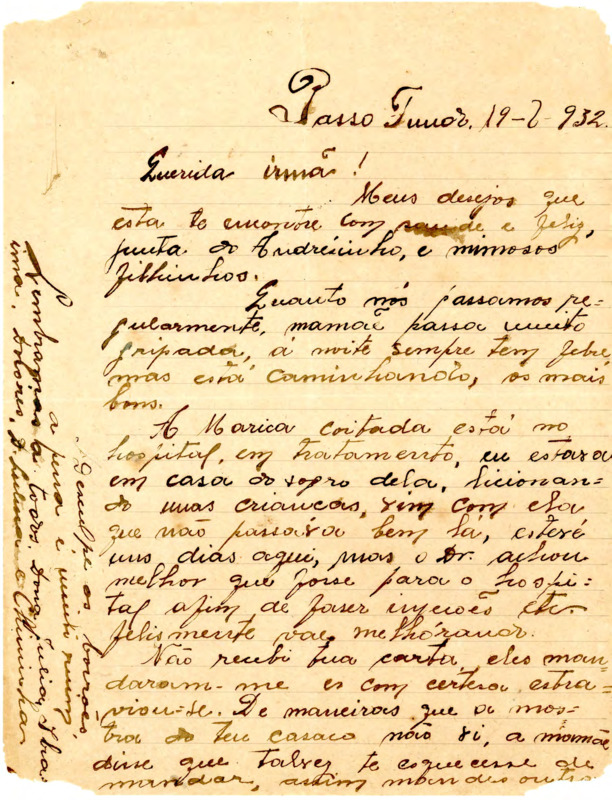 Passo Fundo. 19-7-932.
Querida irmã!
Meus desejos que
esta te encontre com saude e feliz,
junta do Andrésinho, e mimosos
filhinhos.
Quanto nós passamos re-
gularmente, mamãe passa muito
gripada, á noite sempre tem febre
mas está caminhando, os mais
bons.
A Marica coitada está no
hospital, em tratamento, eu estava
em casa do sogro dela, licionan-
do umas crianças, vim com ela
que não passava bem lá, esteve
uns dias aqui, mas o Dr. achou
melhor que fosse para o hospi-
tal afim de faser injeções etc.
felismente vae melhórando.
Não recebi tua carta, eles man-
daram-me es com certesa extra-
viou-se. De maneiras que a mos-
tra do teu casaco não vi, a mamãe
disse que talvez te esquecesse de
mandar, assim mandes outra
Desculpe os borrões
a pena é muito ruim,
Lembranças a todos. Dona Julia, Ibra
ima, Dolores, D.